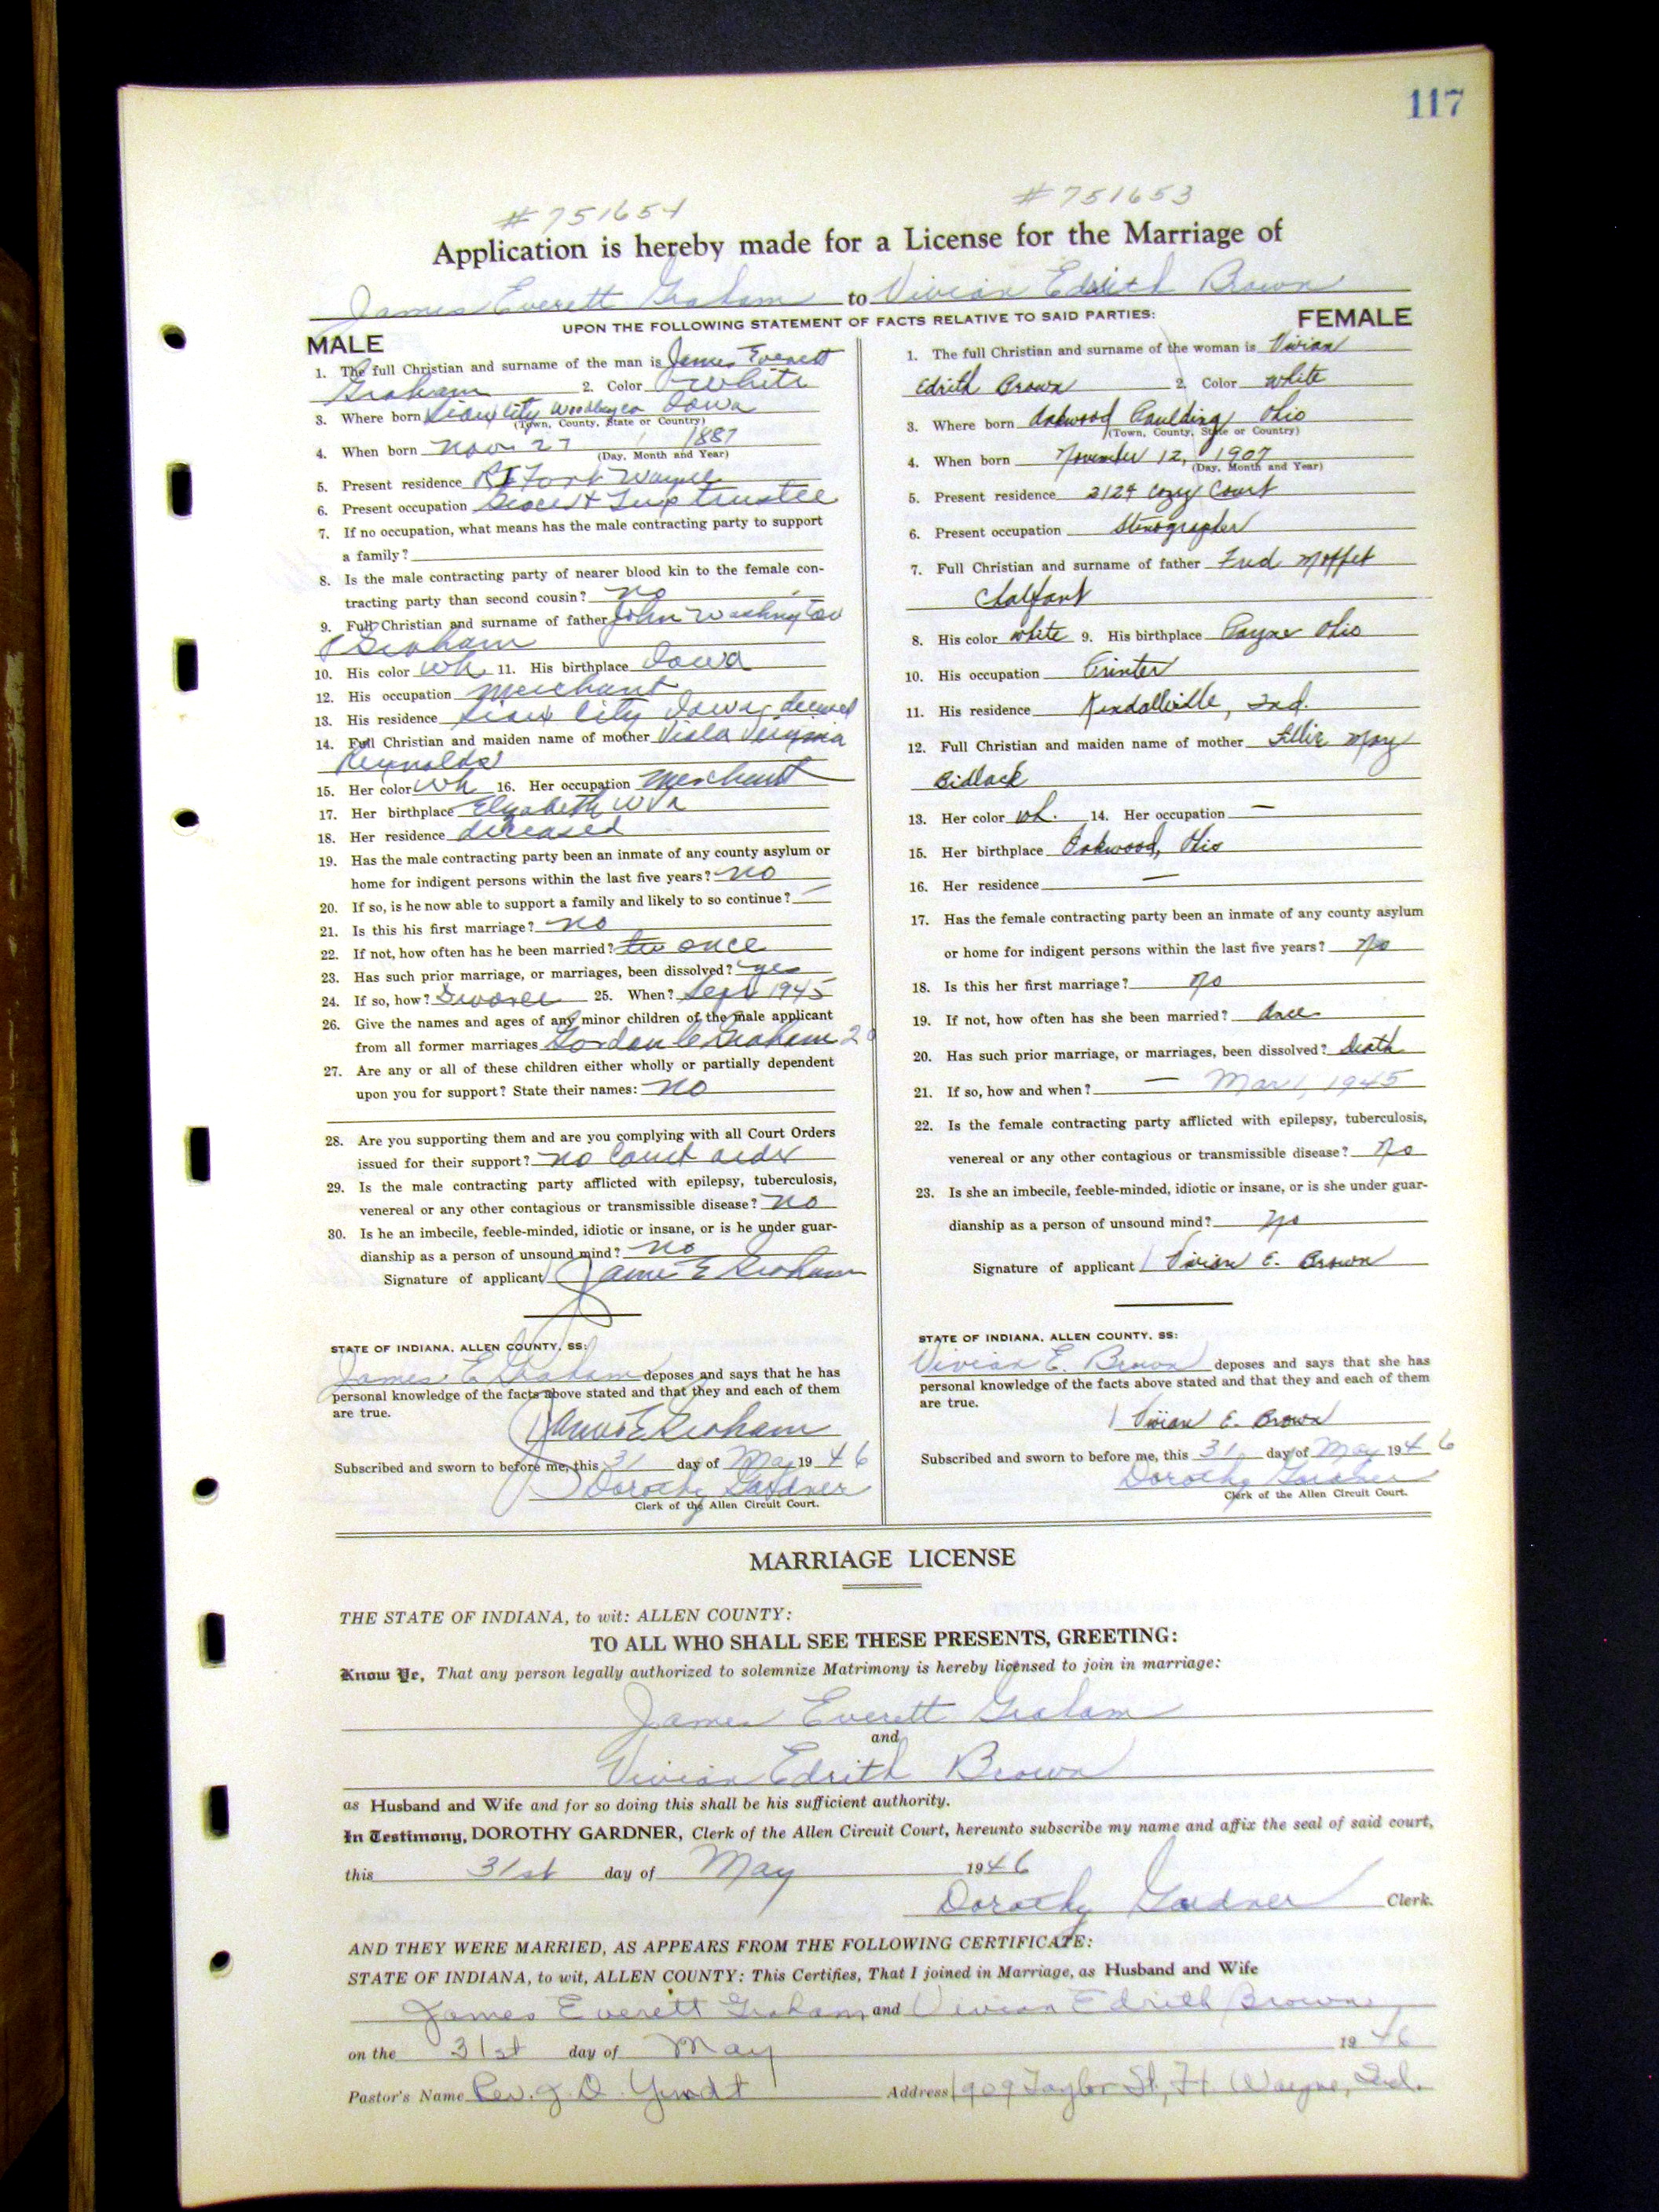 117
#751654 #751653
Application is hereby made for a License for the Marriage of
James Everett Graham to Vivian Edrith Brown
UPON THE FOLLOWING STATEMENT OF FACTS RELATIVE TO SAID PARTIES:
MALE
1. The full Christian and surname of the man is James Everett
Graham 2. Color White
3. Where born Sioux City Woodbury co Iowa
(Town, County, State or Country)
4. When born Nov. 27 1887
(Day, Month and Year)
5. Present residence Fort Wayne
6. Present occupation Twp trustee
7. If no occupation, what means has the male contracting party to support
a family?
8. Is the male contracting party of nearer blood kin to the female con-
tracting party than second cousin? no
9. Full Christian and surname of father John Washington
Graham
10. His color Wh 11. His birthplace Iowa
12. His occupation Merchant
13. His residence Sioux City Iowa, deceased
14. Full Christian and maiden name of mother Viola Virginia
Reynolds
15. Her color Wh 16. Her occupation Merchant
17. Her birthplace Elizabeth W Va
18. Her residence deceased
19. Has the male contracting party been an inmate of any county asylum or
home for indigent persons within the last five years? no
20. If so, is he now able to support a family and likely to so continue? —
21. Is this his first marriage? no
22. If not, how often has he been married? once
23. Has such prior marriage, or marriages, been dissolved? yes
24. If so, how? Divorce 25. When? Sept 1945
26. Give the names and ages of any minor children of the male applicant
from all former marriages Gordon C Graham 20
27. Are any or all of these children either wholly or partially dependent
upon you for support? State their names: no
28. Are you supporting them and are you complying with all Court Orders
issued for their support? no Court order
29. Is the male contracting party afflicted with epilepsy, tuberculosis,
venereal or any other contagious or transmissible disease? no
30. Is he an imbecile, feeble-minded, idiotic or insane, or is he under guar-
dianship as a person of unsound mind? no
Signature of applicant James E Graham
STATE OF INDIANA, ALLEN COUNTY, SS:
James E Graham deposes and says that he has
personal knowledge of the facts above stated and that they and each of them
are true.
James E Graham
Subscribed and sworn to before me, this 31 day of May 1946
Dorothy Gardner
Clerk of the Allen Circuit Court.
FEMALE
1. The full Christian and surname of the woman is Vivian
Edrith Brown 2. Color white
3. Where born Oakwood Paulding Ohio
(Town, County, State or Country)
4. When born November 12, 1907
(Day, Month and Year)
5. Present residence 2124 Cozy Court
6. Present occupation Stenographer
7. Full Christian and surname of father Fred Moffet
Chalfant
8. His color white 9. His birthplace Payne Ohio
10. His occupation Printer
11. His residence Kendallville, Ind.
12. Full Christian and maiden name of mother Lillie May
Bidlack
13. Her color wh. 14. Her occupation —
15. Her birthplace Oakwood, Ohio
16. Her residence —
17. Has the female contracting party been an inmate of any county asylum
or home for indigent persons within the last five years? No
18. Is this her first marriage? No
19. If not, how often has she been married? Once
20. Has such prior marriage, or marriages, been dissolved? Death
21. If so, how and when? — Mar 1, 1945
22. Is the female contracting party afflicted with epilepsy, tuberculosis,
venereal or any other contagious or transmissible disease? No
23. Is she an imbecile, feeble-minded, idiotic or insane, or is she under guar-
dianship as a person of unsound mind? No
Signature of applicant Vivian E. Brown
STATE OF INDIANA, ALLEN COUNTY, SS:
Vivian E. Brown deposes and says that she has
personal knowledge of the facts above stated and that they and each of them
are true.
Vivian E. Brown
Subscribed and sworn to before me, this 31 day of May 1946
Dorothy Gardner
Clerk of the Allen Circuit Court.
MARRIAGE LICENSE
THE STATE OF INDIANA, to wit: ALLEN COUNTY:
TO ALL WHO SHALL SEE THESE PRESENTS, GREETING:
Know Ye, That any person legally authorized to solemnize Matrimony is hereby licensed to join in marriage:
James Everett Graham
and
Vivian Edrith Brown
as Husband and Wife and for so doing this shall be his sufficient authority.
In Testimony, DOROTHY GARDNER, Clerk of the Allen Circuit Court, hereunto subscribe my name and affix the seal of said court,
this 31st day of May 1946
Dorothy Gardner Clerk.
AND THEY WERE MARRIED, AS APPEARS FROM THE FOLLOWING CERTIFICATE:
STATE OF INDIANA, to wit, ALLEN COUNTY: This Certifies, That I joined in Marriage, as Husband and Wife
James Everett Graham and Vivian Edrith Brown
on the 31st day of May 1946
Pastor's Name Rev. J. O. Yundt Address 1909 Taylor St., Ft. Wayne, Ind.